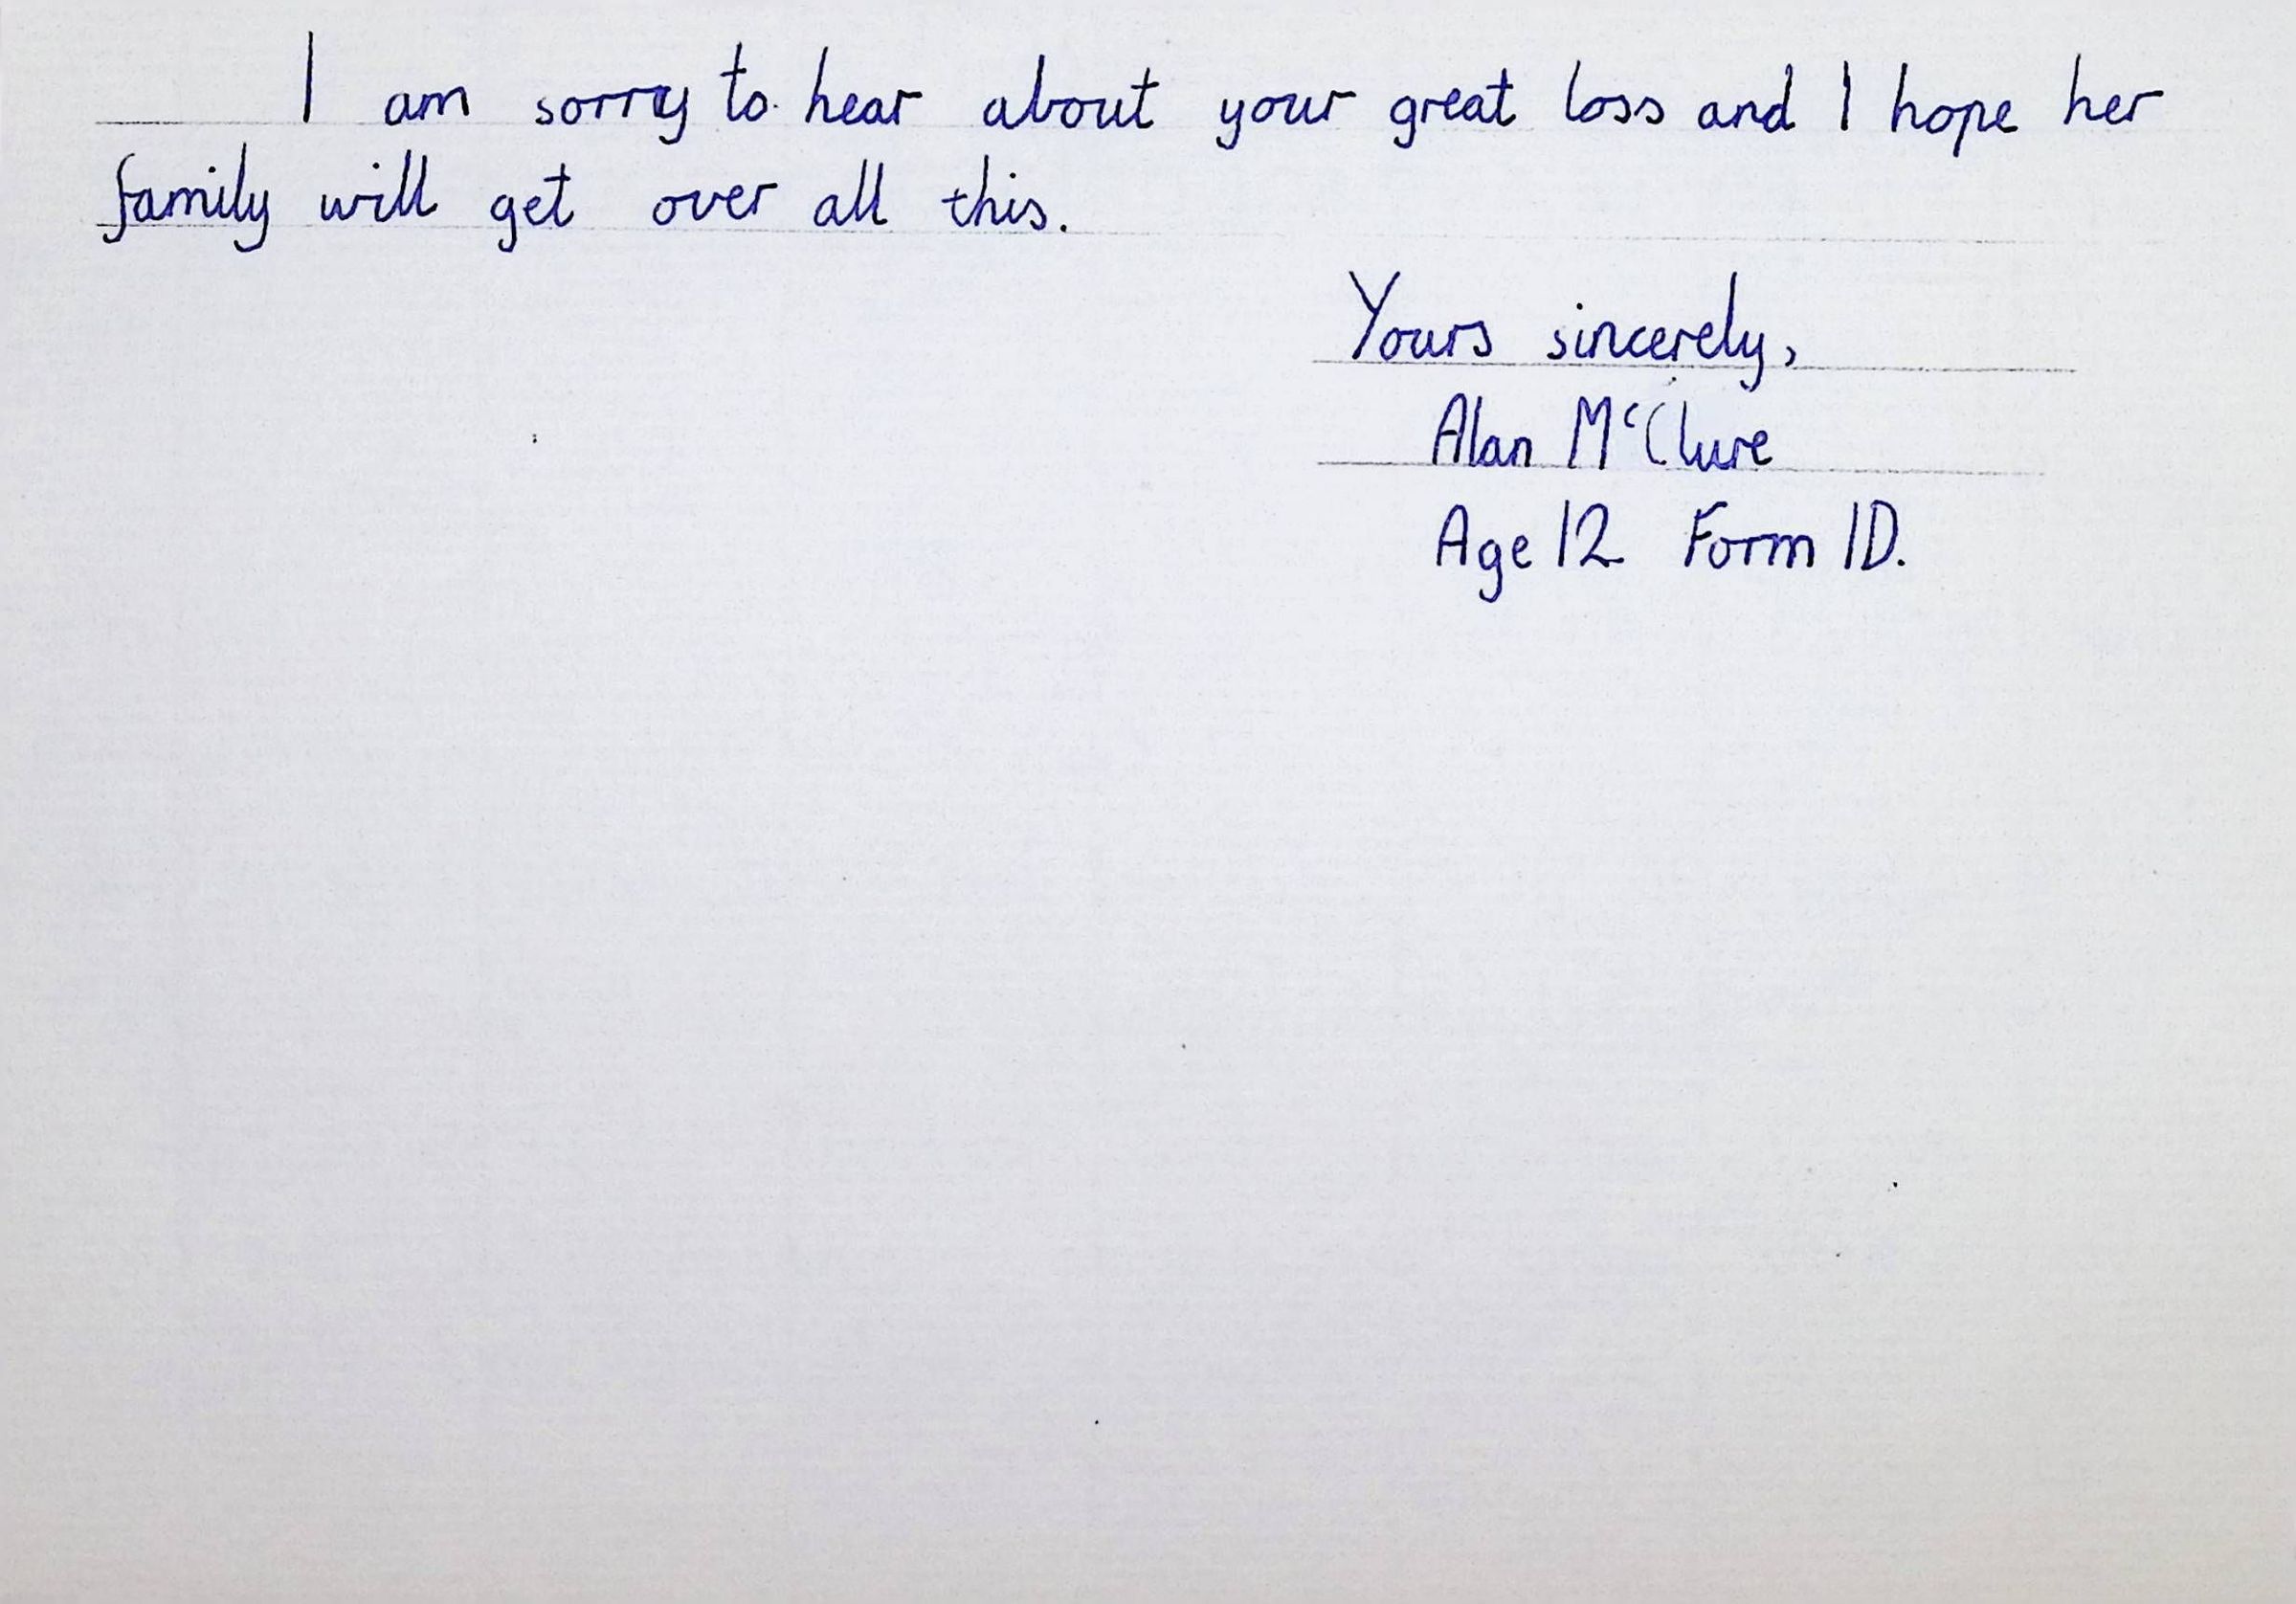 I am sorry to hear about your great loss and I hope her
family will get over all this.
Yours sincerely,
Alan McClure
Age 12 Form 1D.